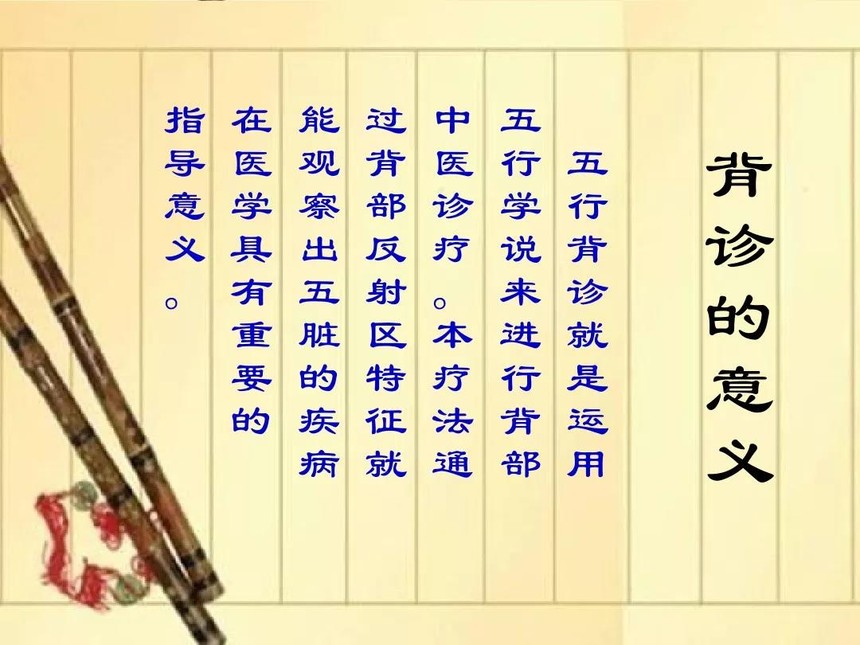 背诊的意义
五行背诊就是运用
五行学说来进行背部
中医诊疗。本疗法通
过背部反射区特征就
能观察出五脏的疾病
在医学具有重要的
指导意义。